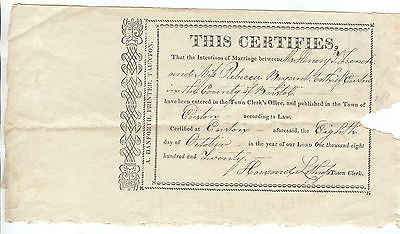 A. DANFORTH, PRINTER, TAUNTON.
THIS CERTIFIES,
That the Intentions of Marriage between Mr Henery French
and Miss Rebecca both of Easton
in the County of Bristol
have been entered in the Town Clerk's Office, and published in the Town of
Easton according to Law.
Certified at Easton aforesaid, the Eighth
day of October in the year of our LORD one thousand eight
hundred and Twenty
Howard Lothrop Town Clerk.